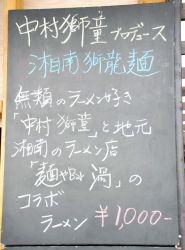 中村獅童プロデュース
湘南獅龍麺
無類のラーメン好き
「中村獅童」と地元
湘南のラーメン店
「麺や 渦」の
コラボ
ラーメン ¥1,000-